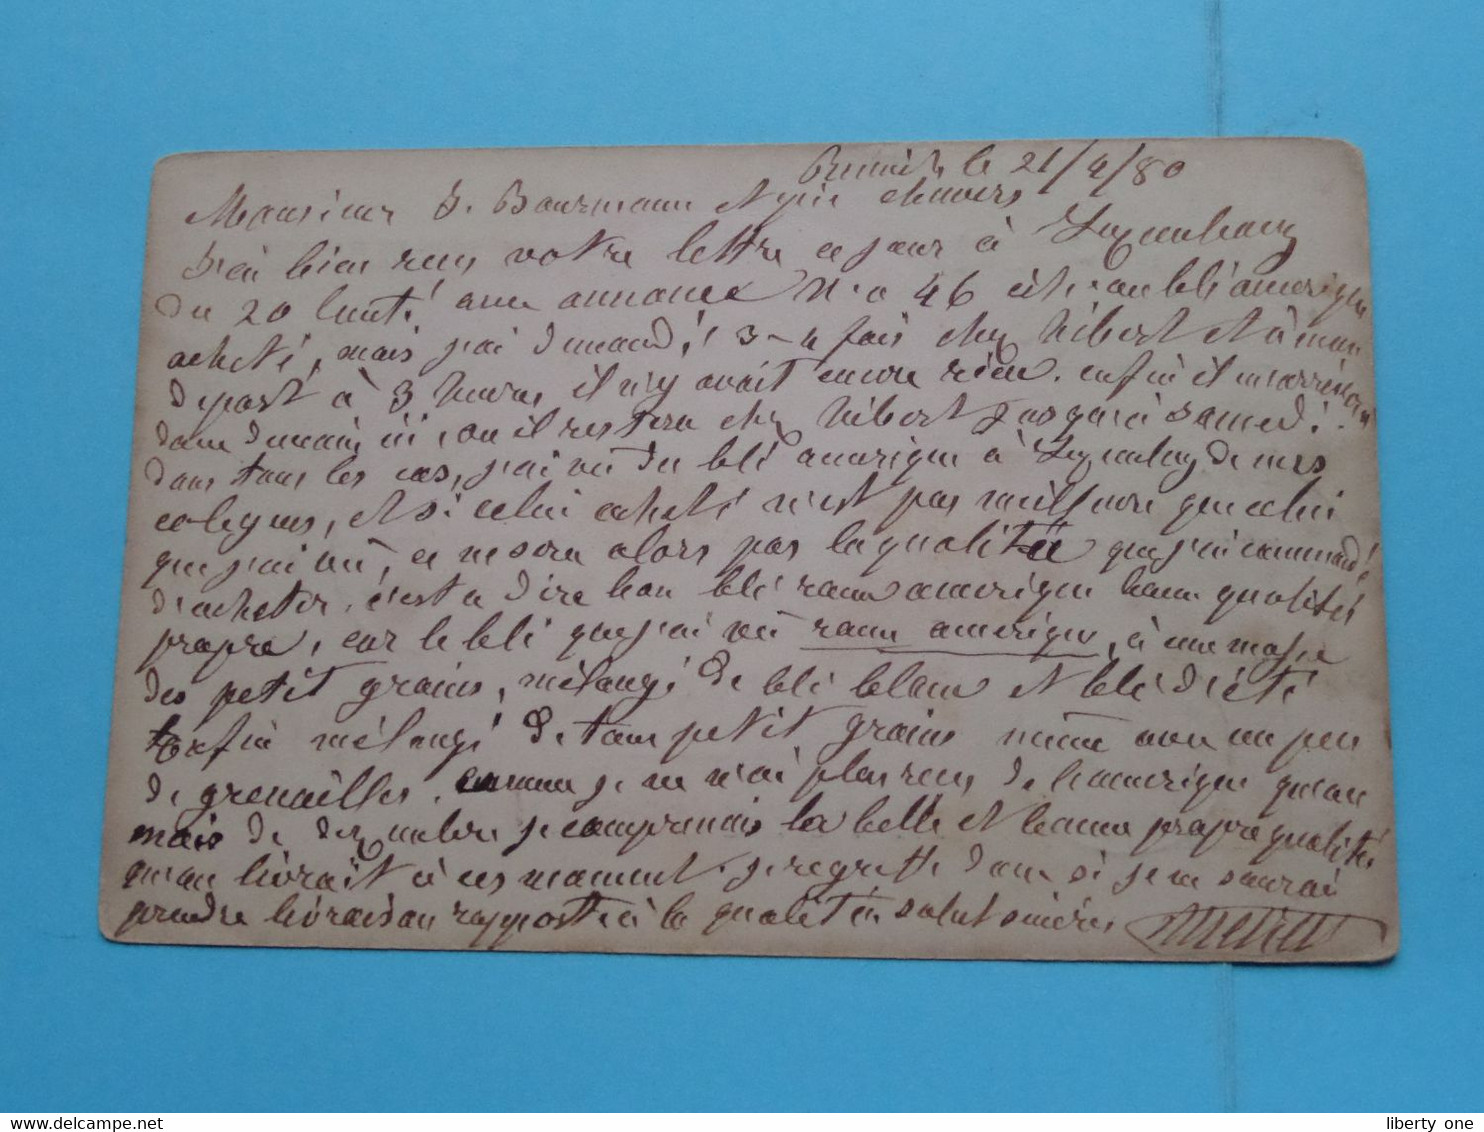 le 21/4/80
Monsieur J. Bourmann Anvers
J'ai bien reçu votre lettre ce jour à Luxembourg
du 20 avec annonce N.o 46 blé amerique
acheté, mais j'ai demandé 3-4 fois chez Nibert et à mon
depart à 3 heures il n'y avait encore rien. enfin il
demain ici, ou il restera chez Nibert jusqu'à samedi.
dans tous les cas, j'ai vu du blé amerique à Luxembourg de mes
colegues, et si celui acheté n'est pas meilleure que celui
que j'ai vu, ce ne sera alors pas la qualité que j'ai commandé
d'acheter, c'est a dire bon blé roux amerique bonne qualité
propre, car le blé que j'ai vu roux amerique, à une masse
des petit grains, mélangé de blé blanc et blé d'été
enfin mélangé de tous petit grains même avec un peu
de grenailles. comme je ne n'ai plus reçu de l'amerique
mais de je comprenais la belle et bonne propre qualité
qu'on livrait à ces moment. je regrette donc si je ne saurai
prendre livraison rapport à la qualité. salut sincère